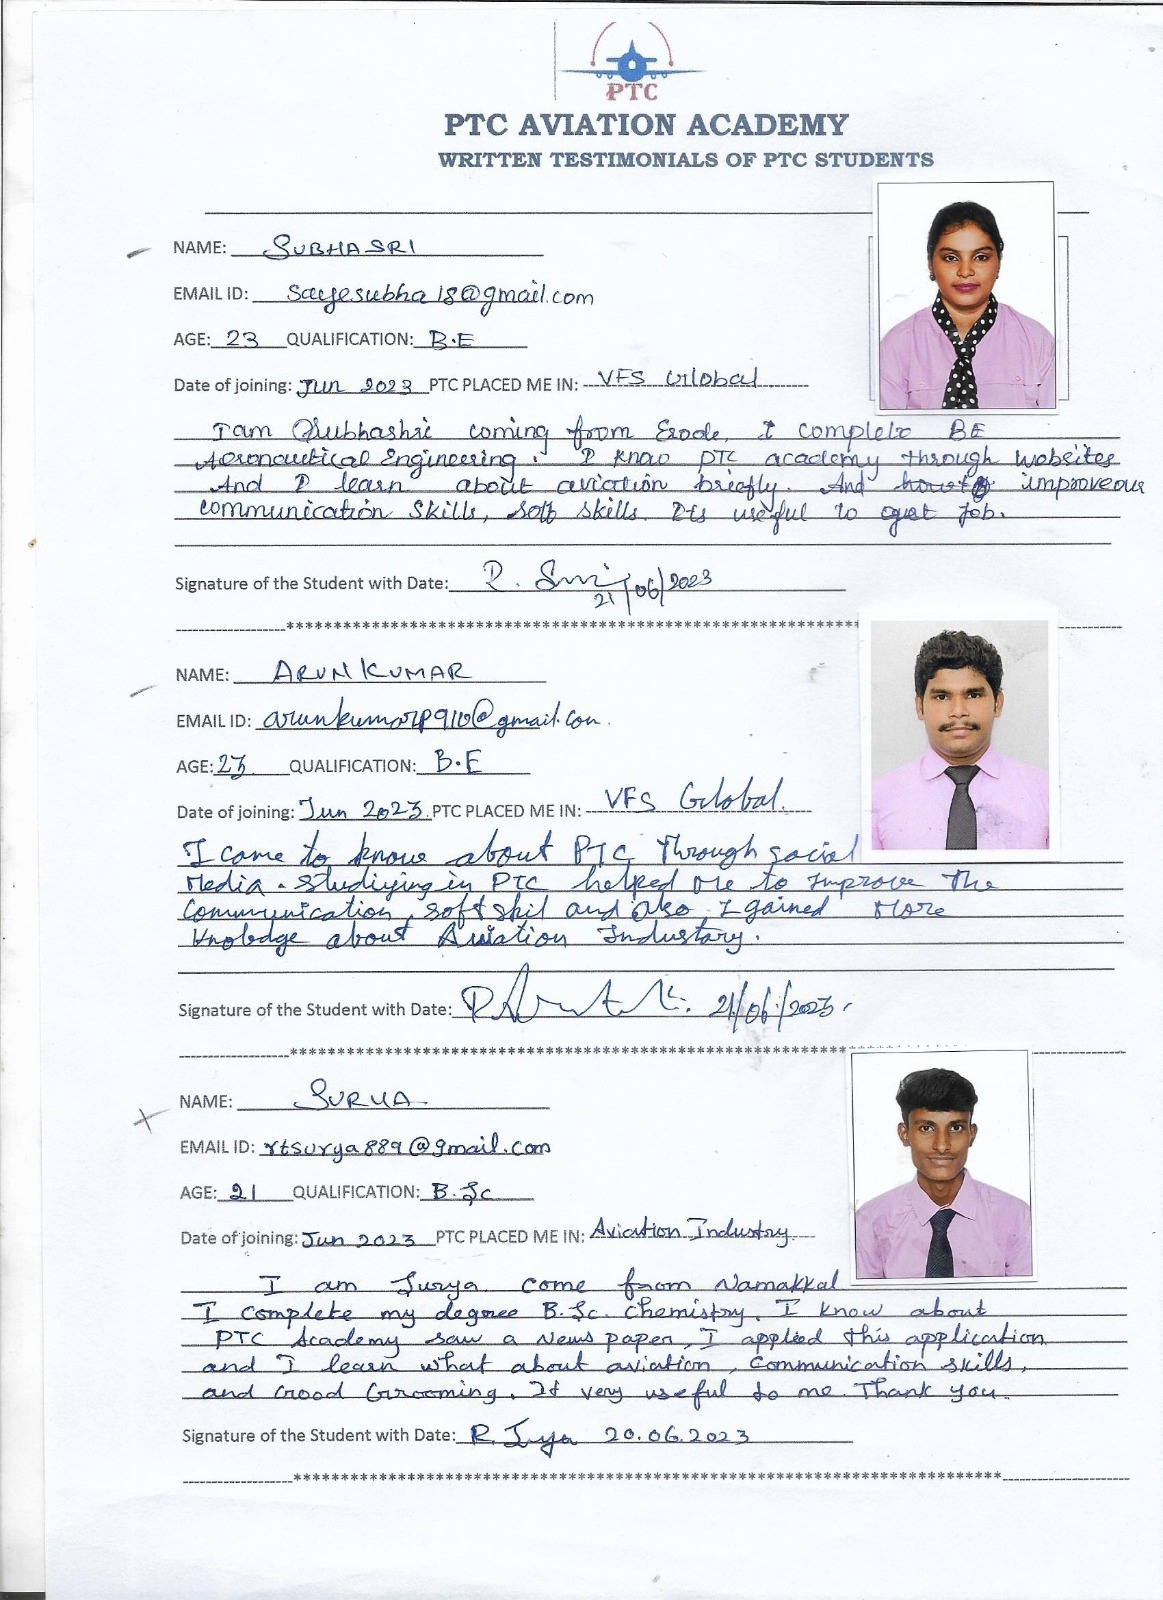 PTC
PTC AVIATION ACADEMY
WRITTEN TESTIMONIALS OF PTC STUDENTS
NAME: SUBHASRI
EMAIL ID: sayesubha18@gmail.com
AGE: 23 QUALIFICATION: B.E
Date of joining: Jun 2023 PTC PLACED ME IN: VFS Global
I am Subhashri coming from Erode, I complete BE
Aeronautical Engineering. I know PTC academy through websites
And I learn about aviation briefly. And how to improve our
communication skills, soft skills. Its useful to get job.
Signature of the Student with Date: R. 21/06/2023
NAME: ARUNKUMAR
EMAIL ID: arunkumarp910@gmail.com.
AGE: 23 QUALIFICATION: B.E
Date of joining: Jun 2023 PTC PLACED ME IN: VFS Global.
I came to know about PTC Through social
Media. Studiying in PTC helped me to improve the
Communication, soft skil and also I gained More
Knoledge about Aviation Industary.
Signature of the Student with Date: 21/06/2023.
NAME: SURYA
EMAIL ID: rtsurya889@gmail.com
AGE: 21 QUALIFICATION: B.Sc
Date of joining: Jun 2023 PTC PLACED ME IN: Aviation Industry
I am Surya come from Namakkal
I complete my degree B.Sc. chemistry. I know about
PTC Academy saw a News paper, I applied this application
and I learn what about aviation, Communication skills,
and Good Grooming. It very useful to me. Thank you.
Signature of the Student with Date: R. Surya 20.06.2023